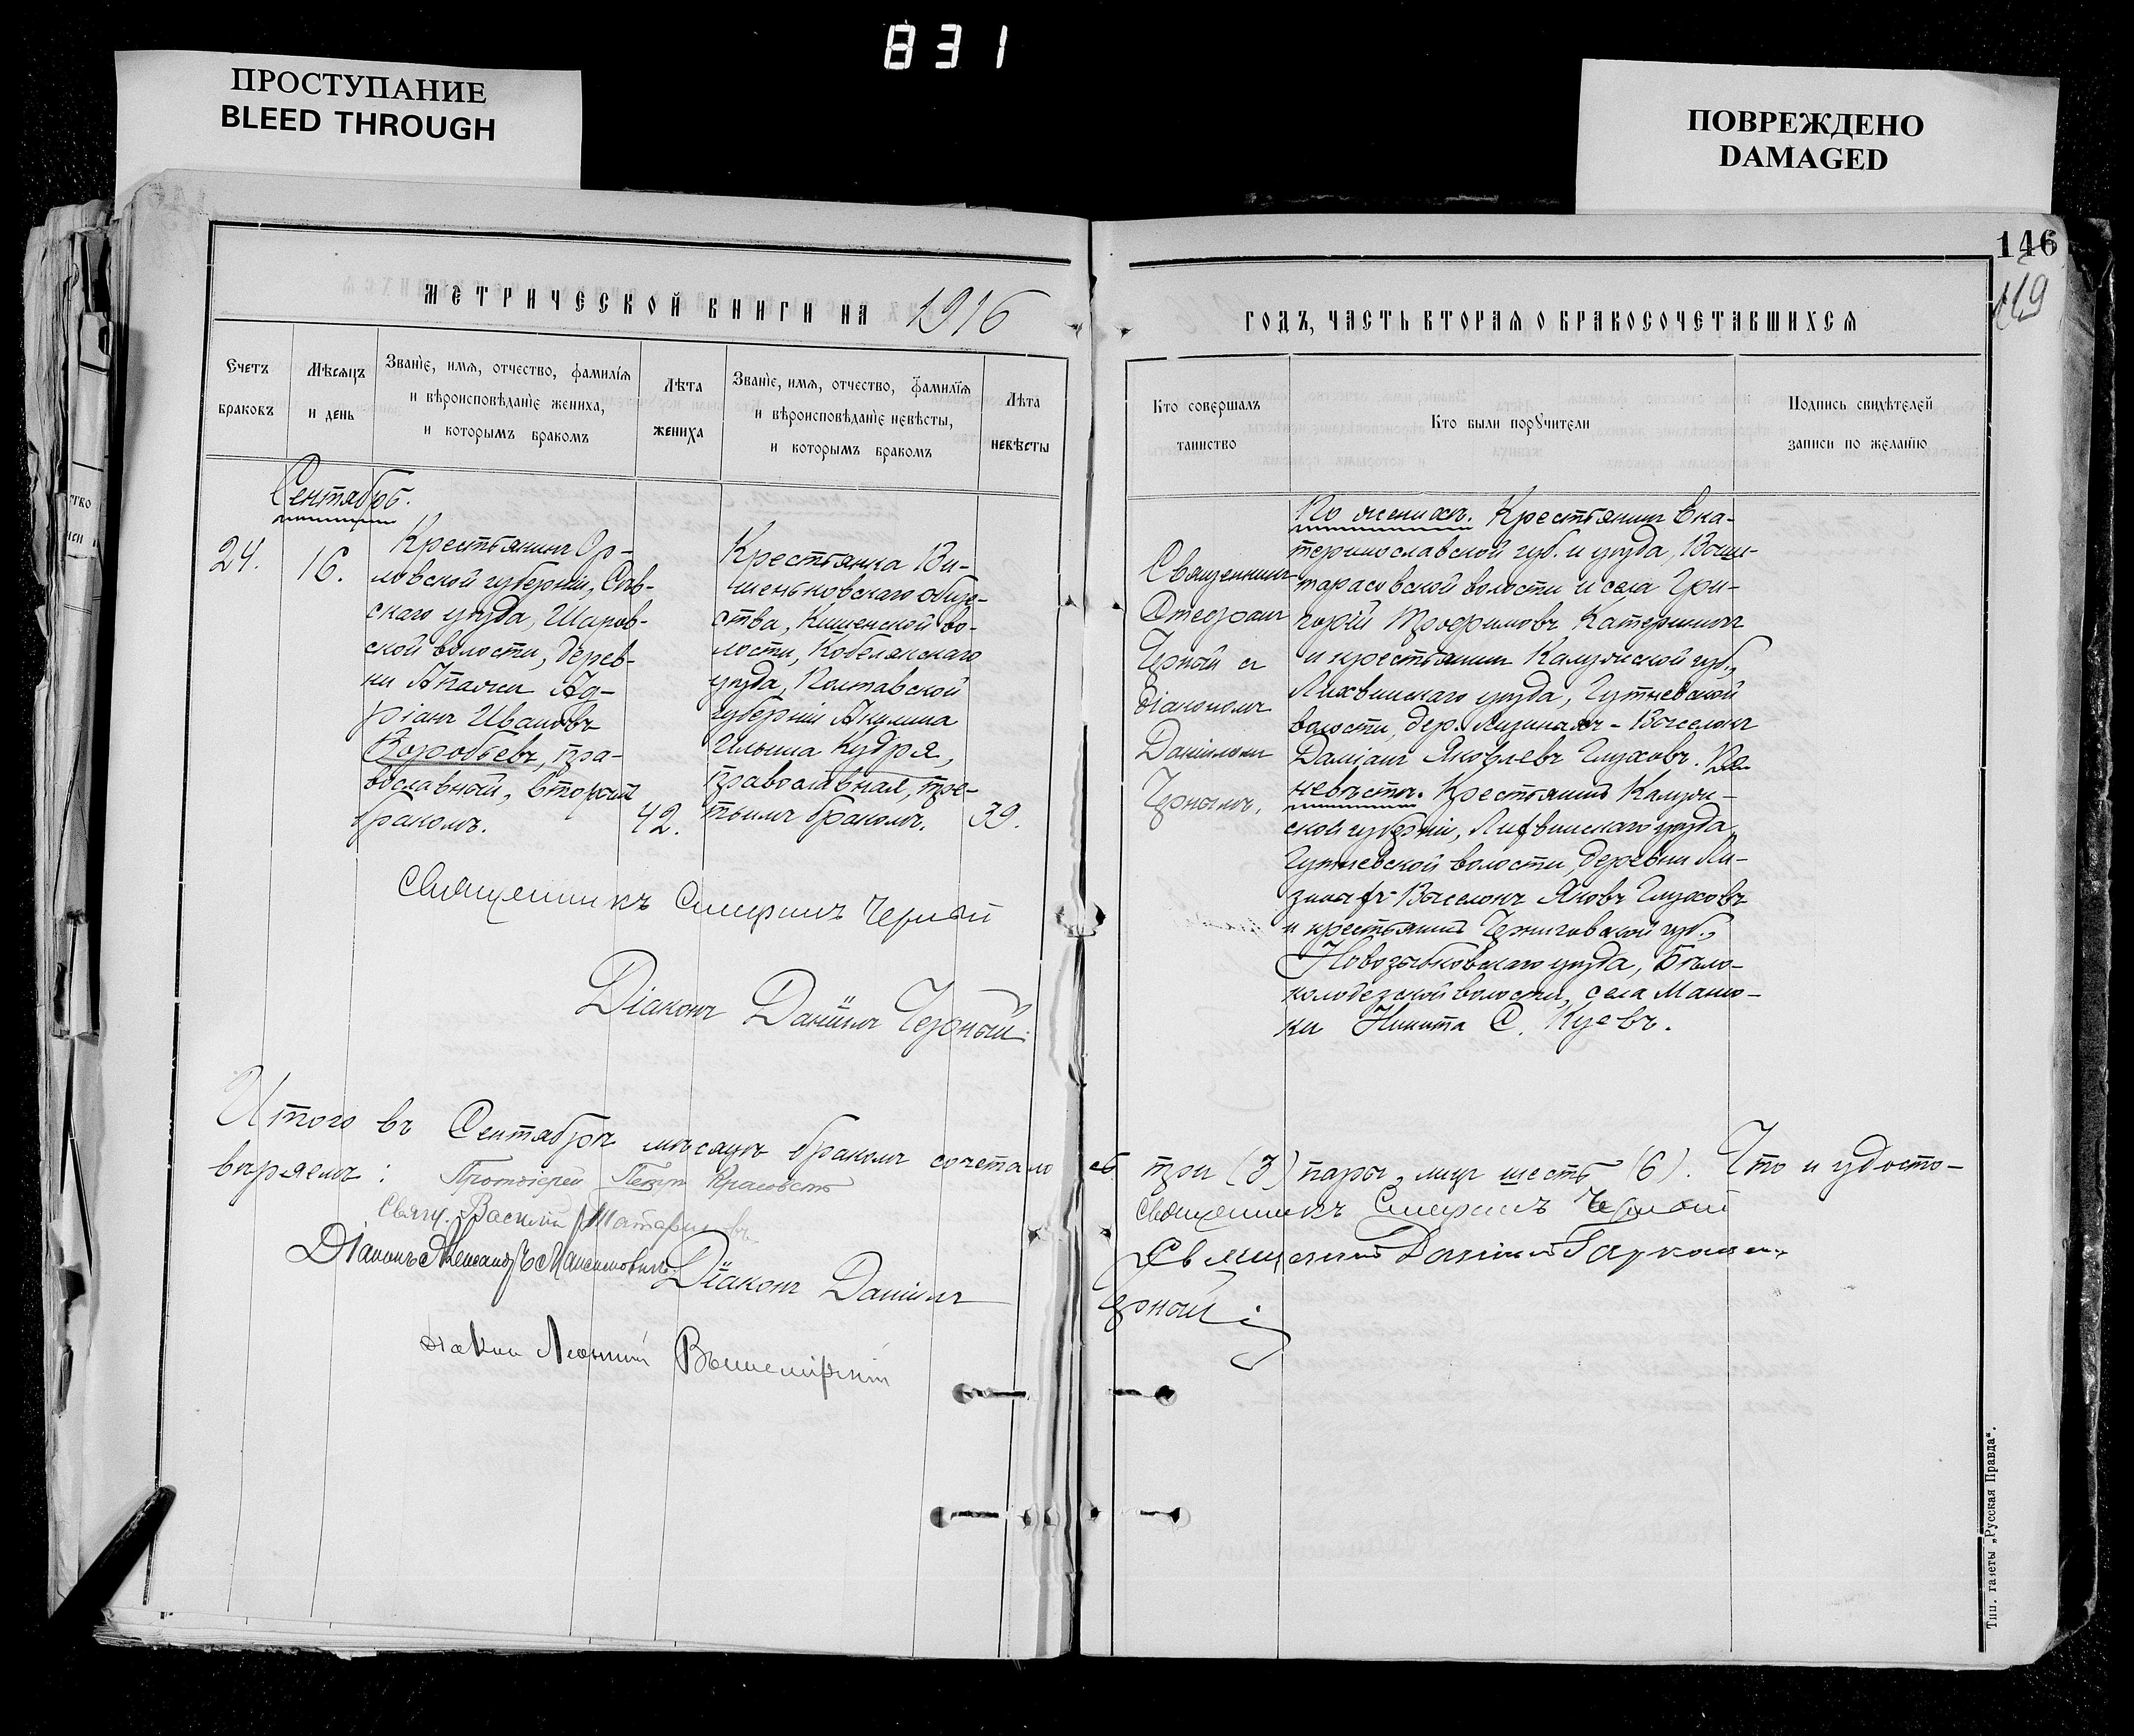 831
ПРОСТУПАНИЕ
BLEED THROUGH
ПОВРЕЖДЕНО
DAMAGED
146
119
МЕТРИЧЕСКОЙ КНИГИ НА 1916
ГОДЪ, ЧАСТЬ ВТОРАЯ О БРАКОСОЧЕТАВШИХСЯ
Счетъ
браковъ
Мѣсяцъ
и день
Званіе, имя, отчество, фамилія
и вѣроисповѣданіе жениха,
и которымъ бракомъ
Лѣта
жениха
Званіе, имя, отчество, фамилія
и вѣроисповѣданіе невѣсты,
и которымъ бракомъ
Лѣта
невѣсты
Кто совершалъ
таинство
Кто были поручители
Подпись свидѣтелей
записи по желанію
Сентябрь.
24.
16.
Крестьянинъ Ор-
ловской губерніи, Сѣв-
скаго уѣзда, Шаров-
ской волости, дерев-
ни Ад-
ріанъ Ивановъ
Воробьевъ, пра-
вославный, вторымъ
бракомъ.
42.
Крестьянка Ви-
шеньковскаго обще-
ства, Кишенской во-
лости, Кобелякскаго
уѣзда, Полтавской
губерніи Акулина
Ильина Кудря,
православная, тре-
тьимъ бракомъ.
39.
Священникъ
Стефанъ
Черный съ
діакономъ
Даніиломъ
Чернымъ.
По женихѣ. Крестьянинъ Ека-
теринославской губ. и уѣзда, Воши-
тарасовской волости и села Гри-
горій Трофимовъ Катеринич
и крестьянинъ Калужской губ.,
Лихвинскаго уѣзда,
волости, дер. Выселокъ
Даміанъ Яковлевъ Глуховъ. По
невѣстѣ. Крестьянинъ Калуж-
ской губерніи, Лихвинскаго уѣзда,
волости, деревни Ли-
Выселокъ Яковъ Глуховъ
и крестьянинъ Черниговской губ.,
Новозыбковскаго уѣзда, Бѣло-
колодезской волости, села Маню-
ки Никита С. Куевъ.
Священникъ Стефанъ Черный
Діаконъ Даніилъ Черный.
Итого въ Сентябрѣ мѣсяцѣ бракомъ сочеталось три (3) пары, лицъ шесть (6). Что и удосто-
вѣряемъ: Протоіерей Петръ
Священникъ Стефанъ Черный
Свящ. Василій
Священникъ Даніилъ
Діаконъ Александръ Максимовичъ
Діаконъ Даніилъ Черный
діаконъ Леонтій
Тип. газеты „Русская Правда“.